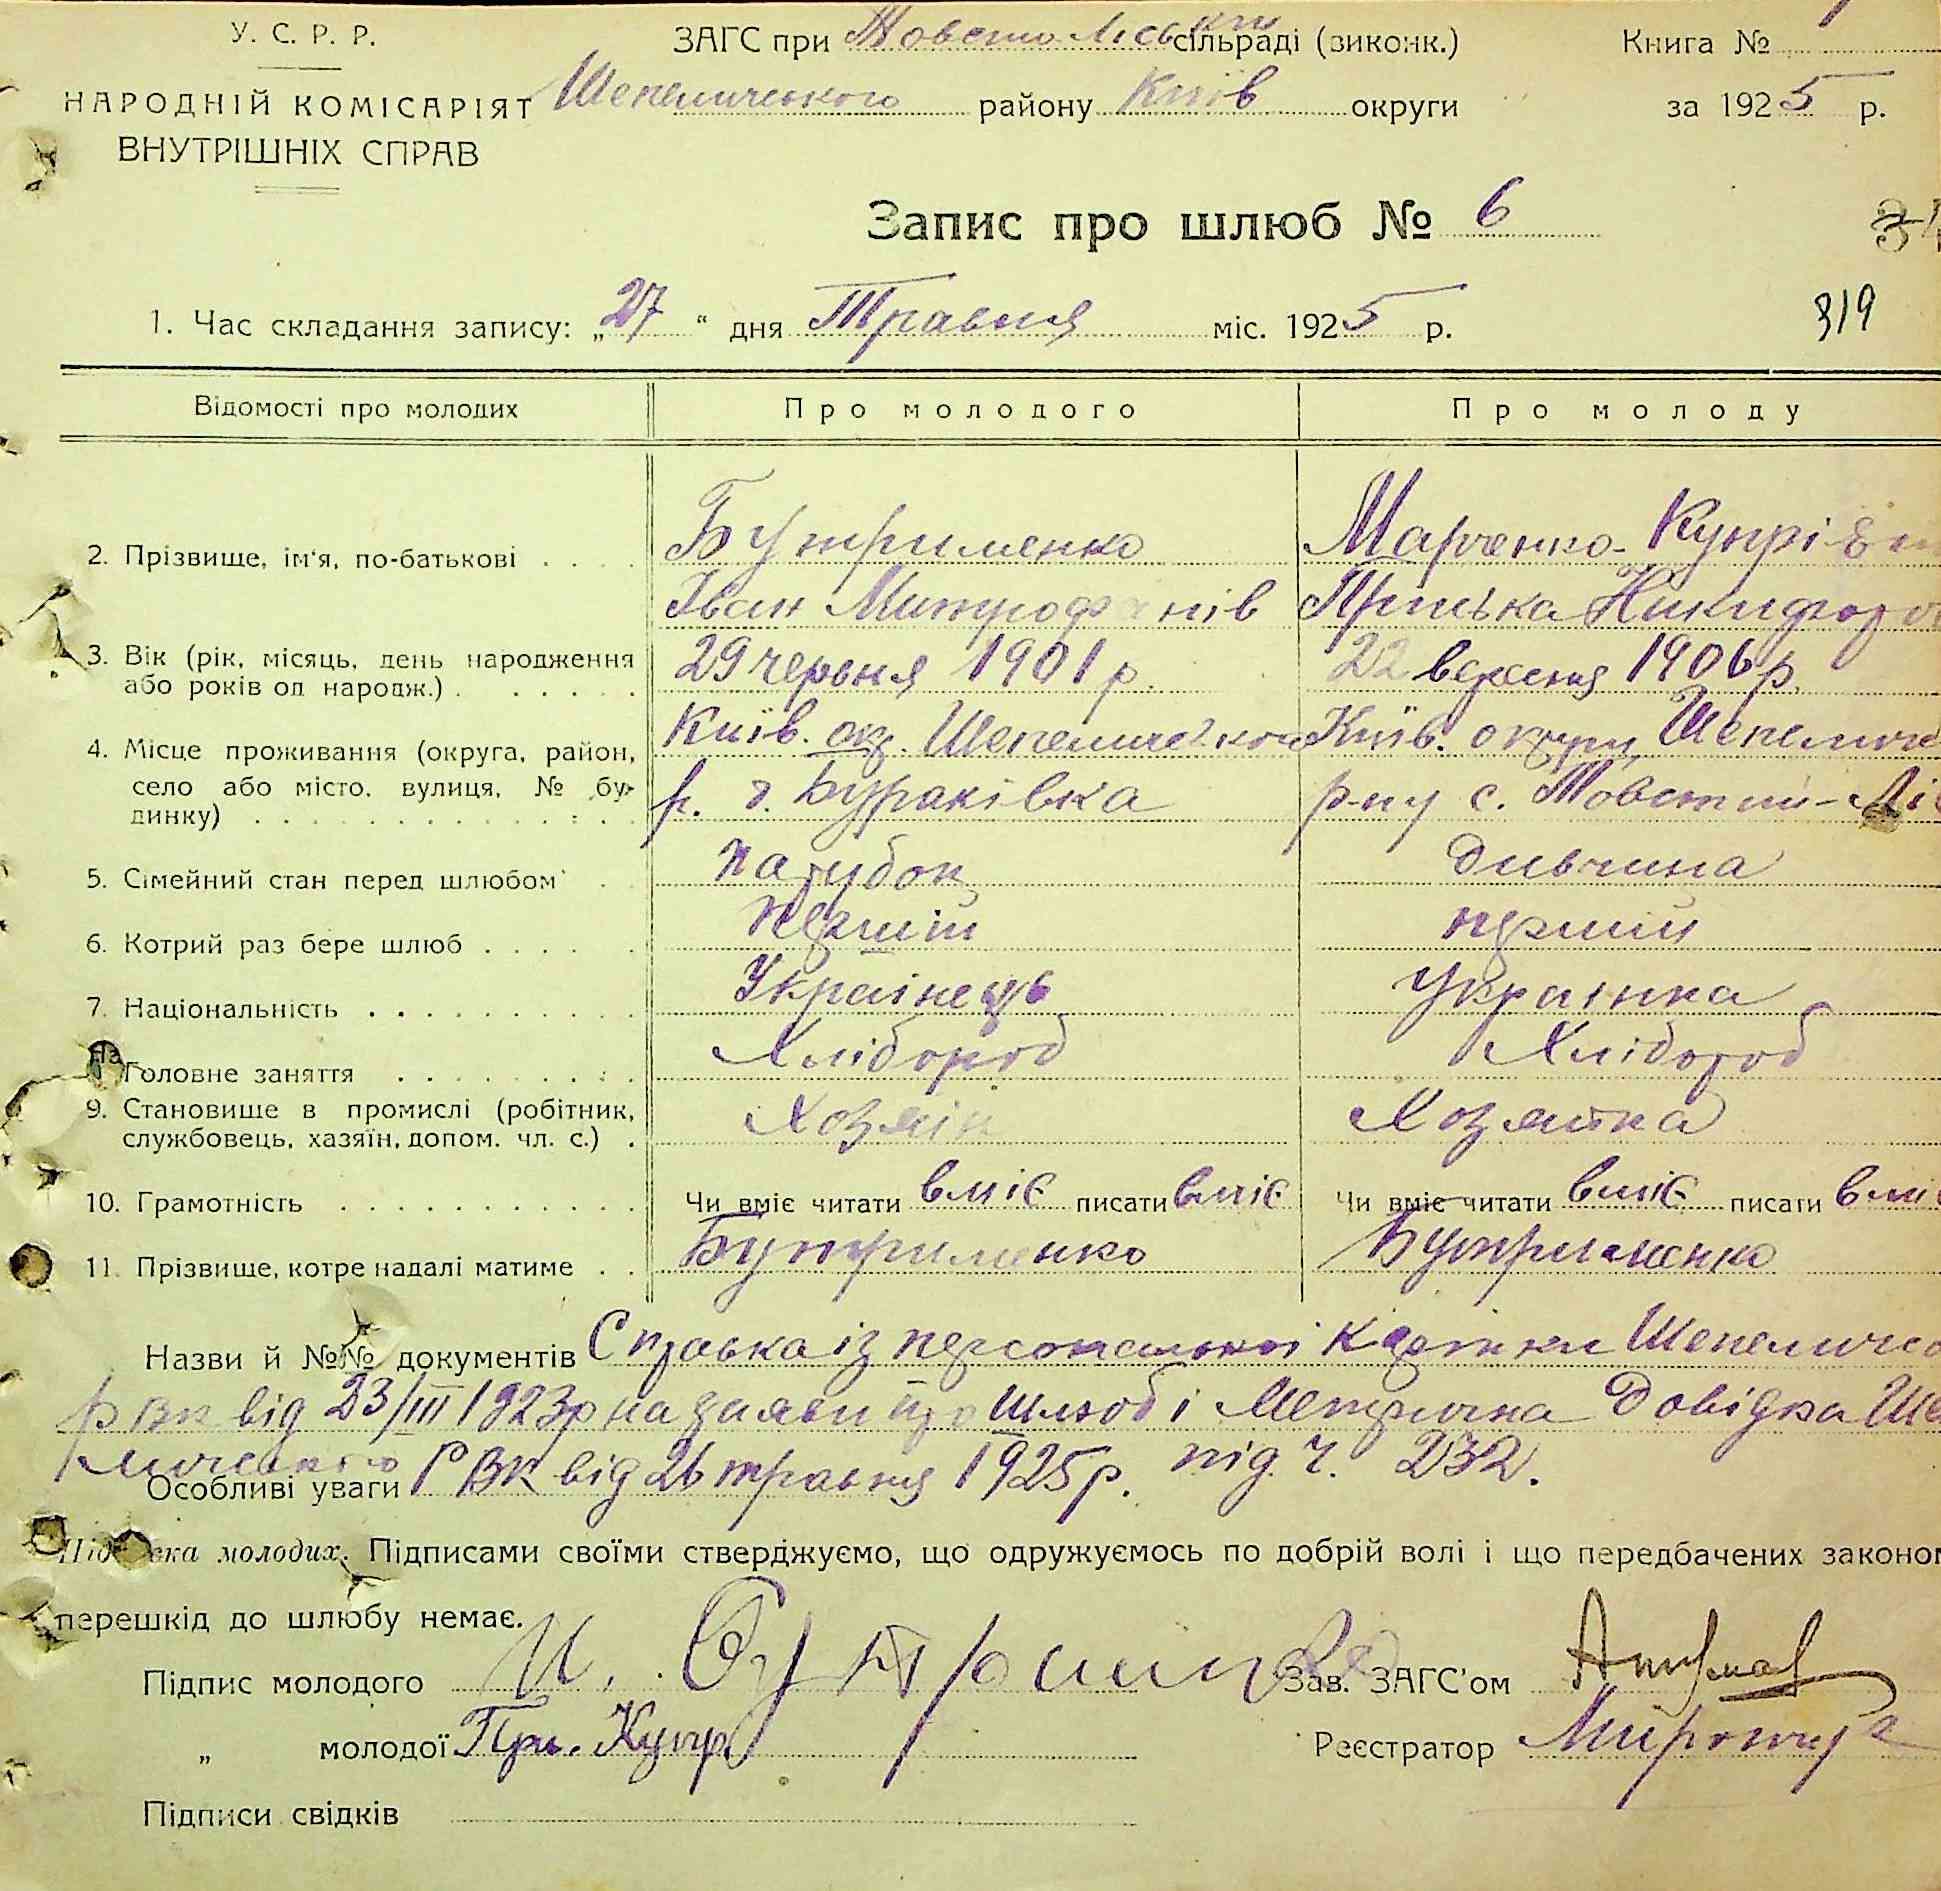 У. С. Р. Р.
НАРОДНІЙ КОМІСАРІЯТ
ВНУТРІШНІХ СПРАВ
ЗАГС при Товсто Ліській сільраді (виконк.)
Шепелического району Київ округи
Книга №
за 1925 р.
Запис про шлюб № 6
319
1. Час складання запису: „27" дня Травня міс. 1925 р.
Відомості про молодих Про молодого Про молоду
2. Прізвище, ім'я, по-батькові Бутрименко Марченко-Купрієн
Іван Митрофанів Пріська Никифоро
3. Вік (рік, місяць, день народження 29 червня 1901 р. 22 вересня 1906 р.
або років од народж.)
4. Місце проживання (округа, район, Київ. окр. Шепелического Київ. округи Шепелич
село або місто, вулиця, № бу- р. с. Бураківка р-ну с. Товстий-Ліс
динку)
5. Сімейний стан перед шлюбом парубок дивчина
6. Котрий раз бере шлюб перший перший
7. Національність Українець Українка
Головне заняття Хлібороб Хлібороб
9. Становище в промислі (робітник, Хозяїн Хозяйка
службовець, хазяїн, допом. чл. с.)
10. Грамотність Чи вміє читати вміє писати вміє Чи вміє читати вміє писати вміє
11. Прізвище, котре надалі матиме Бутрименко Бутрименко
Назви й №№ документів Справка із персональної картки Шепеличс
РВК від 23/III 1923р на заяви про шлюб і Метрична Довідка Ше
Особливі уваги РВК від 26 травня 1925 р. під ч. 232.
молодих. Підписами своїми стверджуємо, що одружуємось по добрій волі і що передбачених законом
перешкід до шлюбу немає.
Підпис молодого И. Бутрименко Зав. ЗАГС'ом
„ молодої При. Купр Реєстратор
Підписи свідків